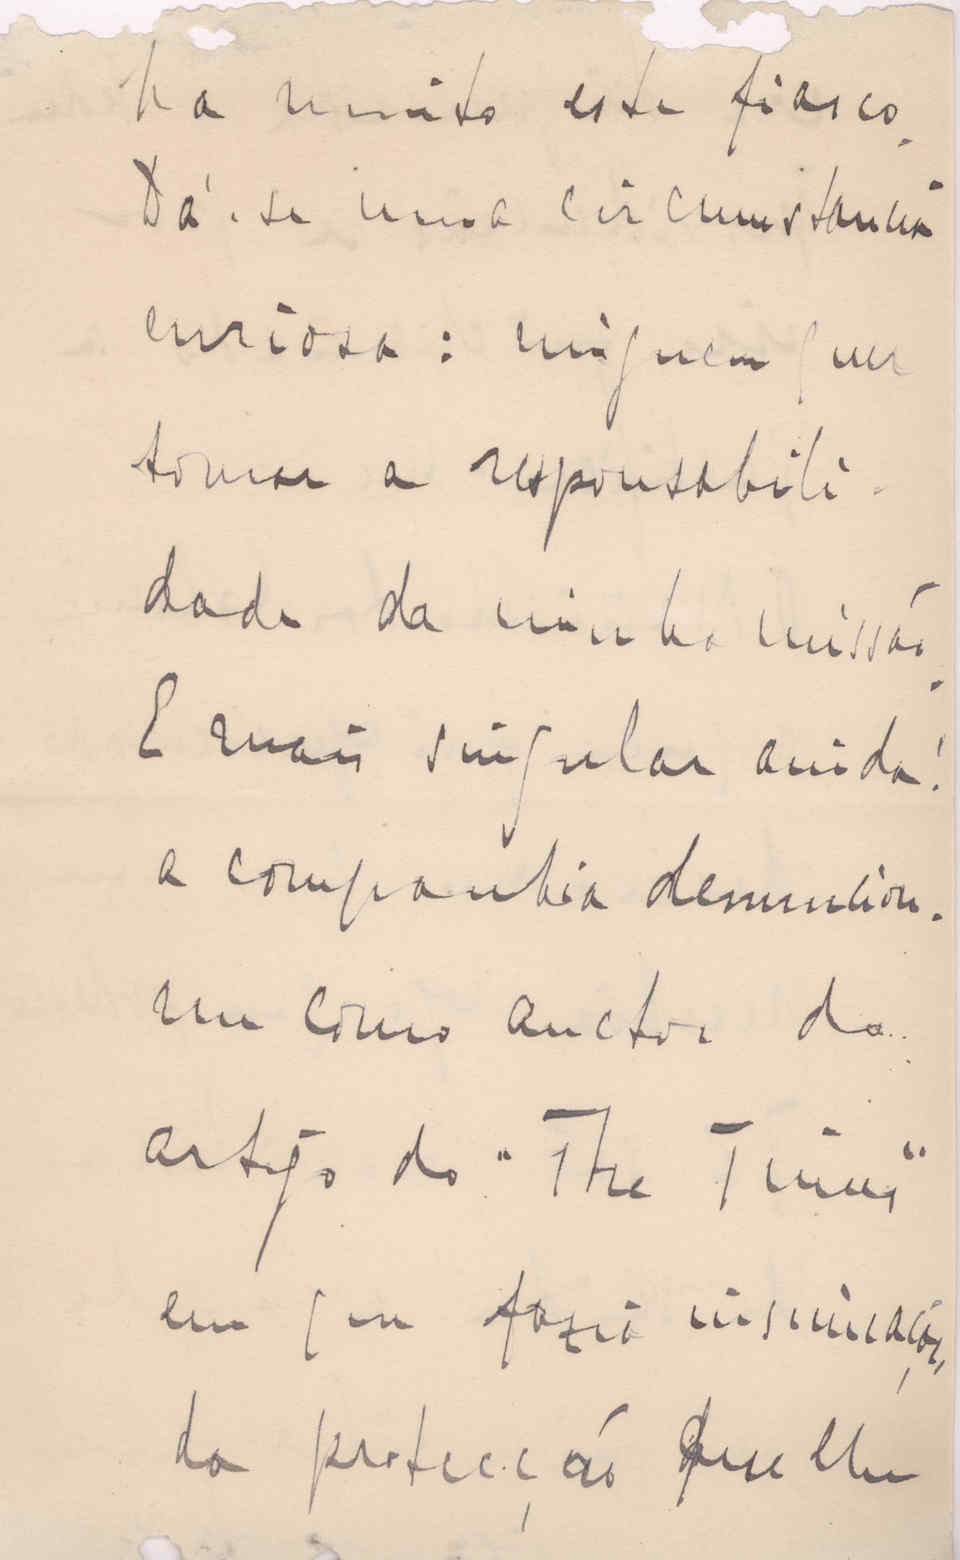 ha muito este fiasco.
Dá-se uma circumstancia
curiosa: ninguem quer
tomar a responsabili-
dade da minha missão.
E mais singular ainda!
a companhia denunciou-
me como auctor do
artigo do "The Times"
em que fazia insinuações
da protecção que elle